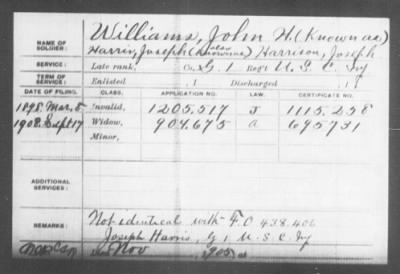 NAME OF SOLDIER: Williams, John H. (Known as)
Harris, Joseph (also Known as) Harrison, Joseph
SERVICE: Late rank, Co. G. 1 Reg't U.S.C. Inf
TERM OF SERVICE: Enlisted , 1 Discharged , 1
DATE OF FILING. CLASS. APPLICATION NO. LAW. CERTIFICATE NO.
1898 Mar, 8 Invalid, 1205,517 J 1115,258
1908 Sept 17 Widow, 904,675 a 695731
Minor,
ADDITIONAL SERVICES:
REMARKS: Not identical with F.C 438.406
Joseph Harris, G 1 U.S.C. Inf
Nov 1905 at